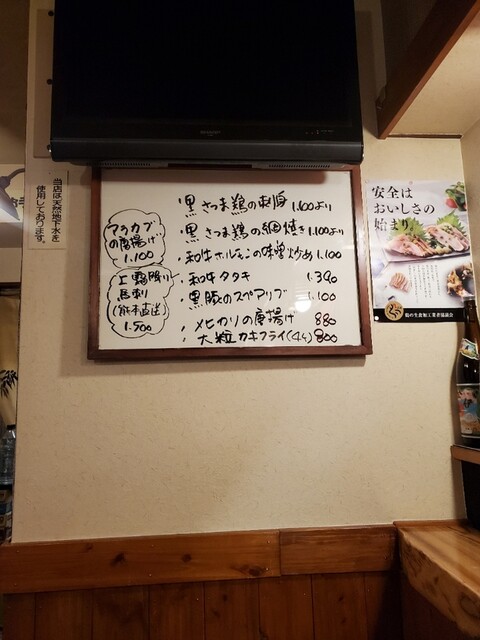 SHARP
当店は天然地下水を
使用しております。
黒さつま鶏の刺身 1,100より
黒さつま鶏の網焼き 1,100より
・和牛ホルモンの味噌炒め 1,100
・和牛タタキ 1,390
・黒豚のスペアリブ 1,100
・メヒカリの唐揚げ 880
・大粒カキフライ(4ヶ) 800
アラカブ
の唐揚げ
1,100
上霜降り
馬刺
(熊本直送)
1,500
安全は
おいしさの
始まり